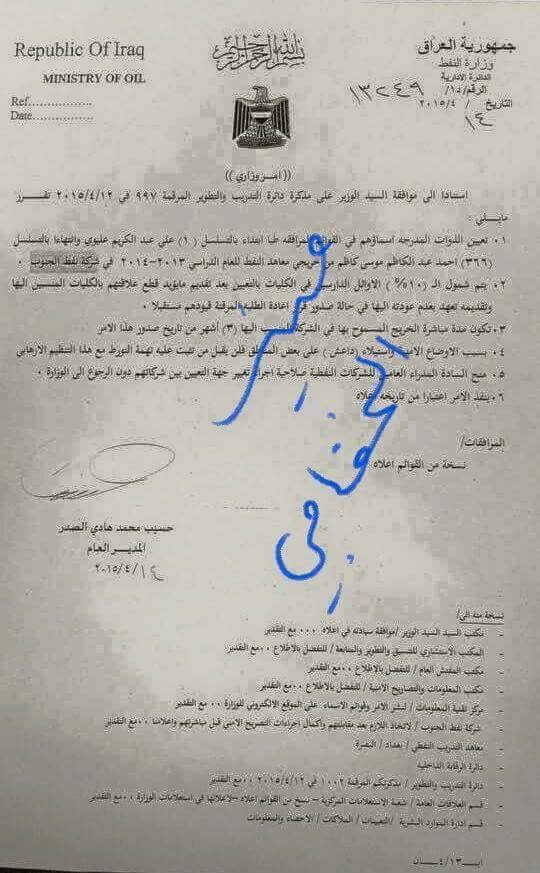 Republic Of Iraq
MINISTRY OF OIL
Ref................
Date...............
بسم الله الرحمن الرحيم
جمهورية العراق
وزارة النفط
الدائرة الادارية
الرقم/د١/ ١٣٢٤٩
التاريخ ١٤ /٢٠١٥/٤
((امر وزاري))
استنادا الى موافقة السيد الوزير على مذكرة دائرة التدريب والتطوير المرقمة ٩٩٧ في ٢٠١٥/٤/١٢ تقرر
مايلي :
١٠ تعيين الذوات المدرجه اسماؤهم في القوائم المرافقه طيا ابتداء بالتسلسل (١) علي عبد الكريم عليوي وانتهاءا بالتسلسل
(٣٦٦) احمد عبد الكاظم موسى كاظم من خريجي معاهد النفط للعام الدراسي ٢٠١٣-٢٠١٤ في شركة نفط الجنوب ٠
٢٠ يتم شمول الـ (١٠%) الاوائل الدارسين في الكليات بالتعيين بعد تقديم مايؤيد قطع علاقتهم بالكليات المنسبين اليها
وتقديمه تعهد بعدم عودته اليها في حالة صدور قرار إعادة الطلبه المرقنة قيودهم مستقبلا ٠
٣٠ تكون مدة مباشرة الخريج المسموح بها في الشركة المنسب اليها (٣) أشهر من تاريخ صدور هذا الامر
٤٠ بسبب الاوضاع الامنية واستيلاء (داعش) على بعض المناطق فلن يقبل من تثبت عليه تهمة التورط مع هذا التنظيم الارهابي
٥٠ منح السادة المدراء العامين للشركات النفطية صلاحية اجراء تغيير جهة التعيين بين شركاتهم دون الرجوع الى الوزارة ٠
٦٠ ينفذ الامر اعتبارا من تاريخه اعلاه
المرافقات/
نسخة من القوائم اعلاه
حسيب محمد هادي الصدر
المدير العام
٢٠١٥/٤/١٤
الخفاجي
نسخة منه الى/
- مكتب السيد السيد الوزير /موافقة سيادته في اعلاه ٠٠٠ مع التقدير
- المكتب الاستشاري للتنسيق والتطوير والمتابعة / للتفضل بالاطلاع ٠٠مع التقدير
- مكتب المفتش العام / للتفضل بالاطلاع ٠٠مع التقدير
- مكتب المعلومات والتصاريح الأمنية / للتفضل بالاطلاع ٠٠مع التقدير
- مركز تقنية المعلومات / لنشر الامر وقوائم الاسماء على الموقع الالكتروني للوزارة ٠٠ مع التقدير
- شركة نفط الجنوب / لاتخاذ اللازم بعد مقابلتهم واكمال اجراءات التصريح الامني قبل مباشرتهم واعلامنا ٠٠مع التقدير
- معاهد التدريب النفطي / بغداد / البصرة
- دائرة الرقابة الداخليه
- دائرة التدريب والتطوير / مذكرتكم المرقمة ١٠٠٢ في ٢٠١٥/٤/١٢ ٠٠مع التقدير
- قسم العلاقات العامة / شعبة الاستعلامات المركزية - نسخ من القوائم اعلاه -لاعلانها في استعلامات الوزارة ٠٠مع التقدير
- قسم ادارة الموارد البشرية / التعيينات / الملاكات / الاحصاء والمعلومات
ايـ ٤/١٣ ـــان